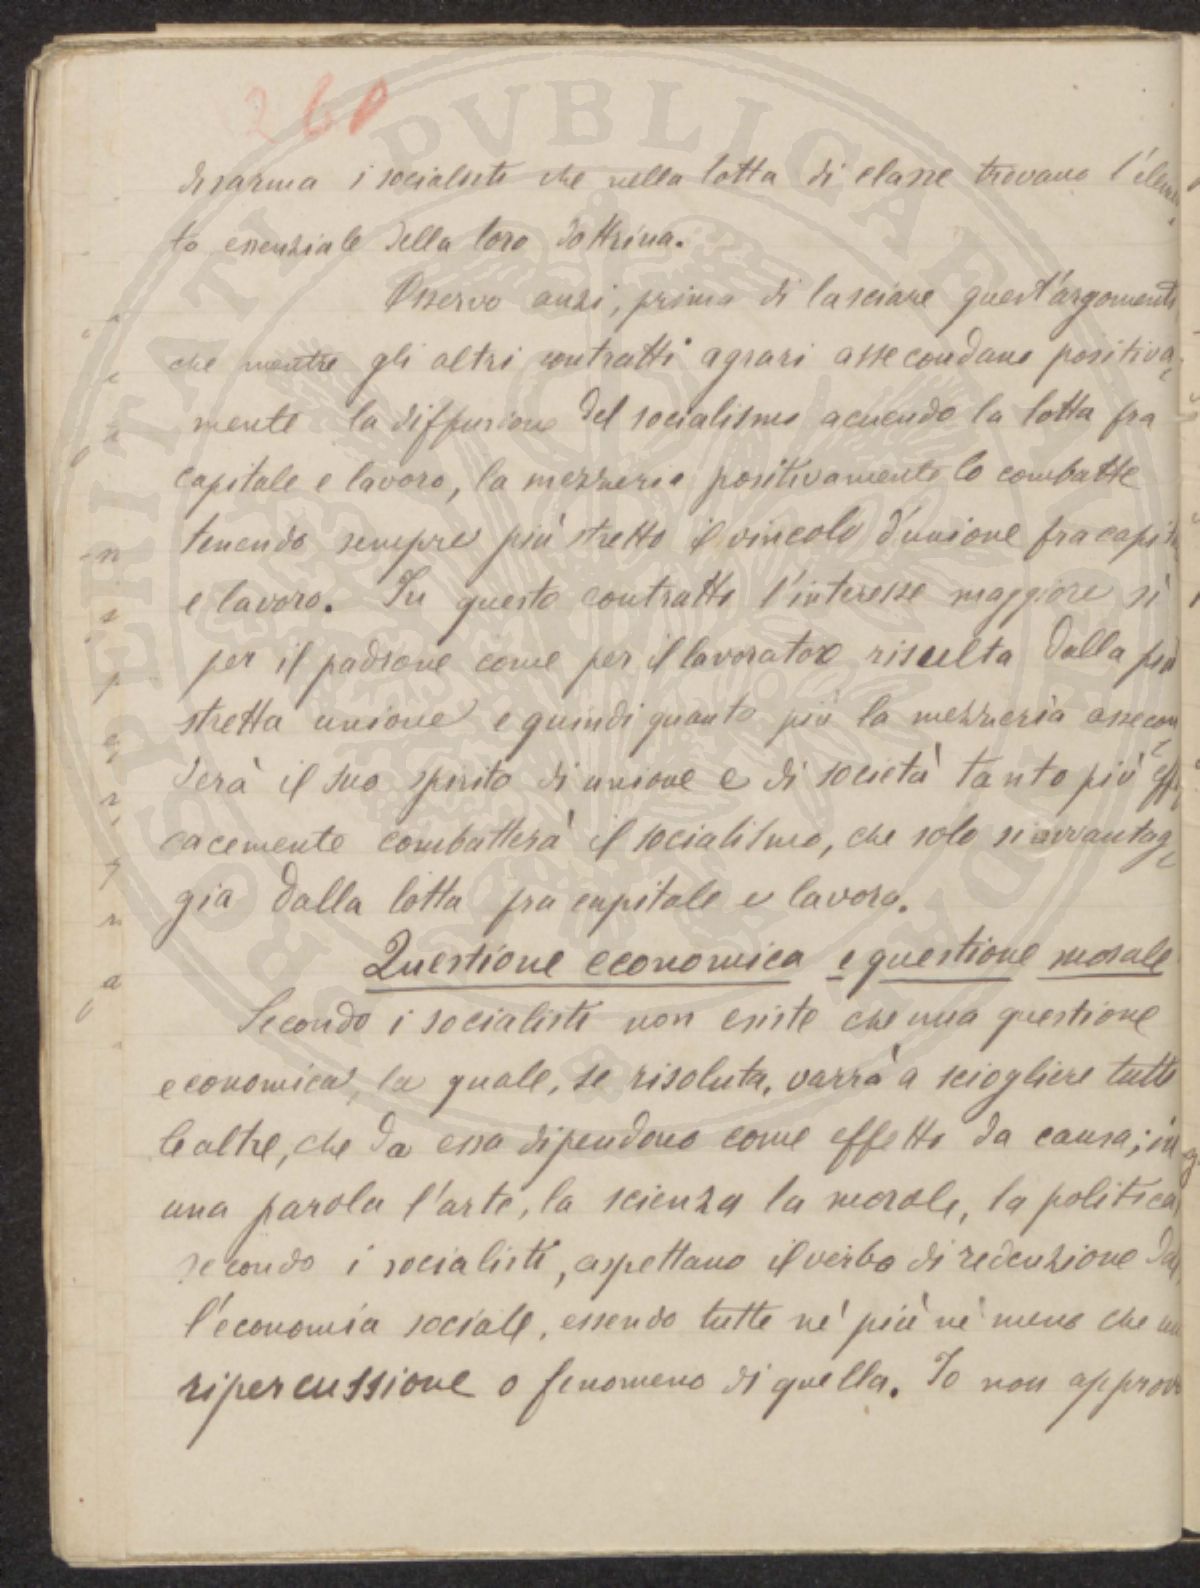 260
disarma i socialisti che nella lotta di classe trovano l'elemen
to essenziale della loro dottrina.
Osservo anzi, prima di lasciare quest'argomento
che mentre gli altri contratti agrari assecondano positiva-
mente la diffusione del socialismo acuendo la lotta fra
capitale e lavoro, la mezzeria positivamente lo combatte
tenendo sempre più stretto il vincolo d'unione fra capitale
e lavoro. In questo contratto l'interesse maggiore sì
per il padrone come per il lavoratore risulta dalla più
stretta unione e quindi quanto più la mezzeria assecon
derà il suo spirito di unione e di società tanto più effi
cacemente combatterà il socialismo, che solo si avvantag-
gia dalla lotta fra capitale e lavoro.
Questione economica e questione morale
Secondo i socialisti non esiste che una questione
economica, la quale, se risoluta, varrà a sciogliere tutte
le altre, che da essa dipendono come effetto da causa; in
una parola l'arte, la scienza la morale, la politica,
secondo i socialisti, aspettano il verbo di redenzione dal
l'economia sociale, essendo tutte nè più nè meno che una
ripercussione o fenomeno di quella. Io non approvo
PROSPERITATI PVBLICAE AVGENDAE